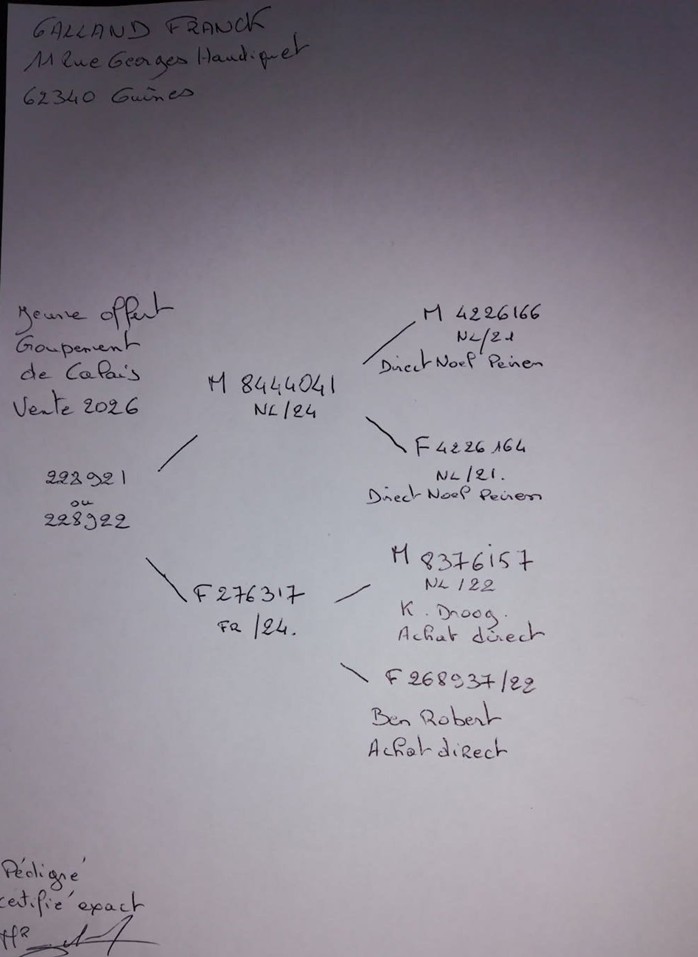 GALLAND FRANCK
11 Rue Georges Haudiquet
62340 Guînes
Jeune offert
Goupement
de Calais
Vente 2026
228921
ou
228922
M 8444041
NL/24
F 276317
FR /24.
M 4226166
NL/21
Direct Noel Peiren
F 4226164
NL/21.
Direct Noel Peiren
M 8376157
NL /22
K. Droog.
Achat direct
F 268937/22
Ben Robert
Achat direct
Pédigré
certifié exact